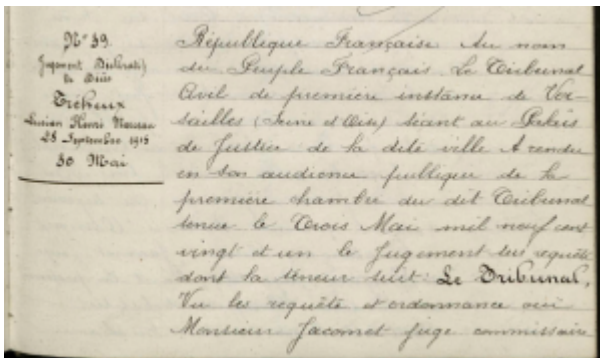 N° 39.
Jugement Déclaratif
de Décès
Trébeux
Lucien Henri Marceau
28 Septembre 1915
30 Mai
République Française Au nom
du Peuple Français. Le Tribunal
Civil de première instance de Ver-
sailles (Seine et Oise) séant au Palais
de Justice de la dite ville A rendu
en son audience publique de la
première chambre du dit Tribunal
tenue le Trois Mai mil neuf cent
vingt et un le Jugement sur requête
dont la teneur suit: Le Tribunal,
Vu les requête et ordonnance ouï
Monsieur Jacomet Juge commissaire